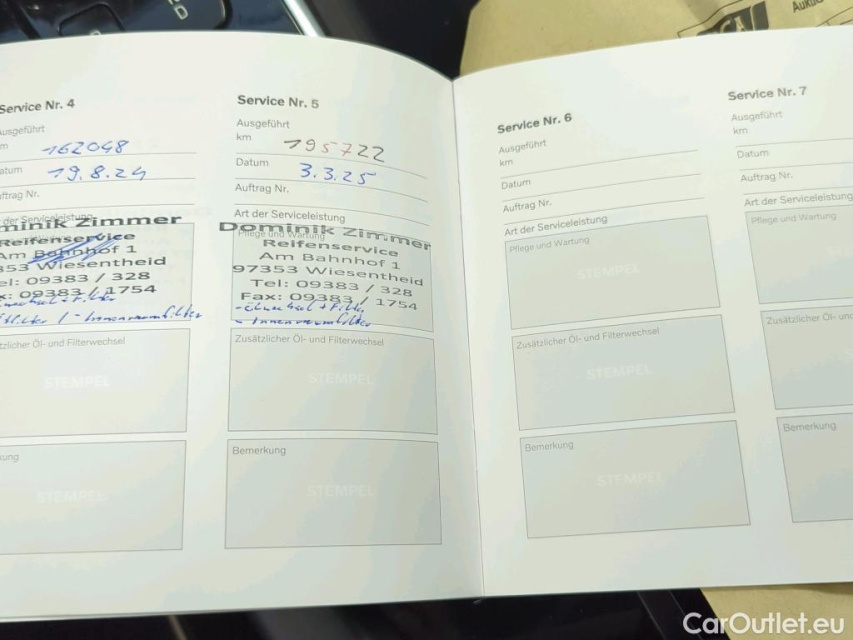 D
Aukti
Service Nr. 4
Ausgeführt
km 162048
Datum 19.8.24
Auftrag Nr.
Art der Serviceleistung
Dominik Zimmer
Reifenservice
Am Bahnhof 1
97353 Wiesentheid
Tel: 09383 / 328
Fax: 09383 / 1754
Innenraumfilter
Zusätzlicher Öl- und Filterwechsel
STEMPEL
Bemerkung
STEMPEL
Service Nr. 5
Ausgeführt
km 195722
Datum 3.3.25
Auftrag Nr.
Art der Serviceleistung
Pflege und Wartung
Dominik Zimmer
Reifenservice
Am Bahnhof 1
97353 Wiesentheid
Tel: 09383 / 328
Fax: 09383 / 1754
- Ölwechsel + Filter
- Innenraumfilter
Zusätzlicher Öl- und Filterwechsel
STEMPEL
Bemerkung
STEMPEL
Service Nr. 6
Ausgeführt
km
Datum
Auftrag Nr.
Art der Serviceleistung
Pflege und Wartung
STEMPEL
Zusätzlicher Öl- und Filterwechsel
STEMPEL
Bemerkung
STEMPEL
Service Nr. 7
Ausgeführt
km
Datum
Auftrag Nr.
Art der Serviceleistung
Pflege und Wartung
Zusätzlicher Öl- und
Bemerkung
CarOutlet.eu